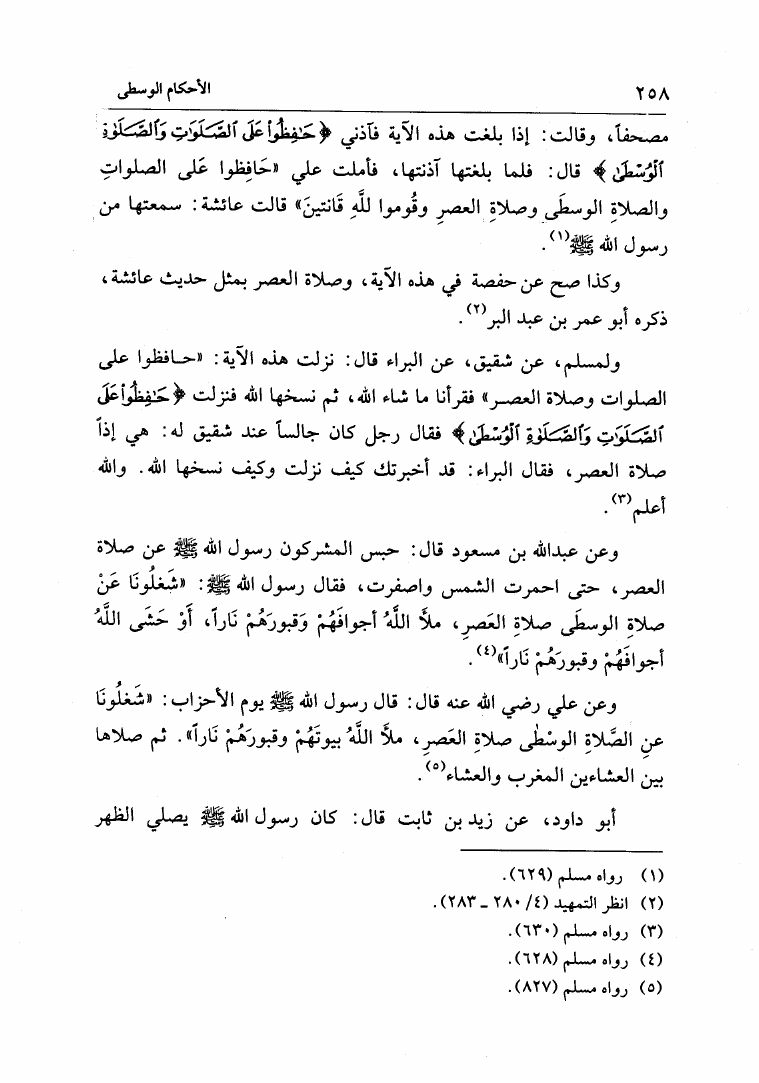 ٢٥٨ الأحكام الوسطى
مصحفاً، وقالت: إذا بلغت هذه الآية فآذني ﴿حَٰفِظُوا۟ عَلَى ٱلصَّلَوَٰتِ وَٱلصَّلَوٰةِ
ٱلْوُسْطَىٰ﴾ قال: فلما بلغتها آذنتها، فأملت علي «حَافِظوا عَلى الصلواتِ
والصلاةِ الوسطَى وصلاةِ العصرِ وقُوموا للَّهِ قَانتينَ» قالت عائشة: سمعتها من
رسول الله ﷺ(١).
وكذا صح عن حفصة في هذه الآية، وصلاة العصر بمثل حديث عائشة،
ذكره أبو عمر بن عبد البر(٢).
ولمسلم، عن شقيق، عن البراء قال: نزلت هذه الآية: «حافظوا على
الصلوات وصلاة العصر» فقرأنا ما شاء الله، ثم نسخها الله فنزلت ﴿حَٰفِظُوا۟ عَلَى
ٱلصَّلَوَٰتِ وَٱلصَّلَوٰةِ ٱلْوُسْطَىٰ﴾ فقال رجل كان جالساً عند شقيق له: هي إذاً
صلاة العصر، فقال البراء: قد أخبرتك كيف نزلت وكيف نسخها الله. والله
أعلم(٣).
وعن عبدالله بن مسعود قال: حبس المشركون رسول الله ﷺ عن صلاة
العصر، حتى احمرت الشمس واصفرت، فقال رسول الله ﷺ: «شَغلُونَا عَنْ
صلاةِ الوسطَى صلاةِ العَصرِ، ملأَ اللَّهُ أجوافَهُمْ وَقبورَهُمْ نَاراً، أَوْ حَشَى اللَّهُ
أجوافَهُمْ وقبورَهُمْ نَاراً»(٤).
وعن علي رضي الله عنه قال: قال رسول الله ﷺ يوم الأحزاب: «شَغلُونَا
عنِ الصَّلاةِ الوسْطى صلاةِ العَصرِ، ملأَ اللَّهُ بيوتَهُمْ وقبورَهُمْ نَاراً». ثم صلاها
بين العشاءين المغرب والعشاء(٥).
أبو داود، عن زيد بن ثابت قال: كان رسول الله ﷺ يصلي الظهر
(١) رواه مسلم (٦٢٩).
(٢) انظر التمهيد (٤/ ٢٨٠ ـ ٢٨٣).
(٣) رواه مسلم (٦٣٠).
(٤) رواه مسلم (٦٢٨).
(٥) رواه مسلم (٨٢٧).